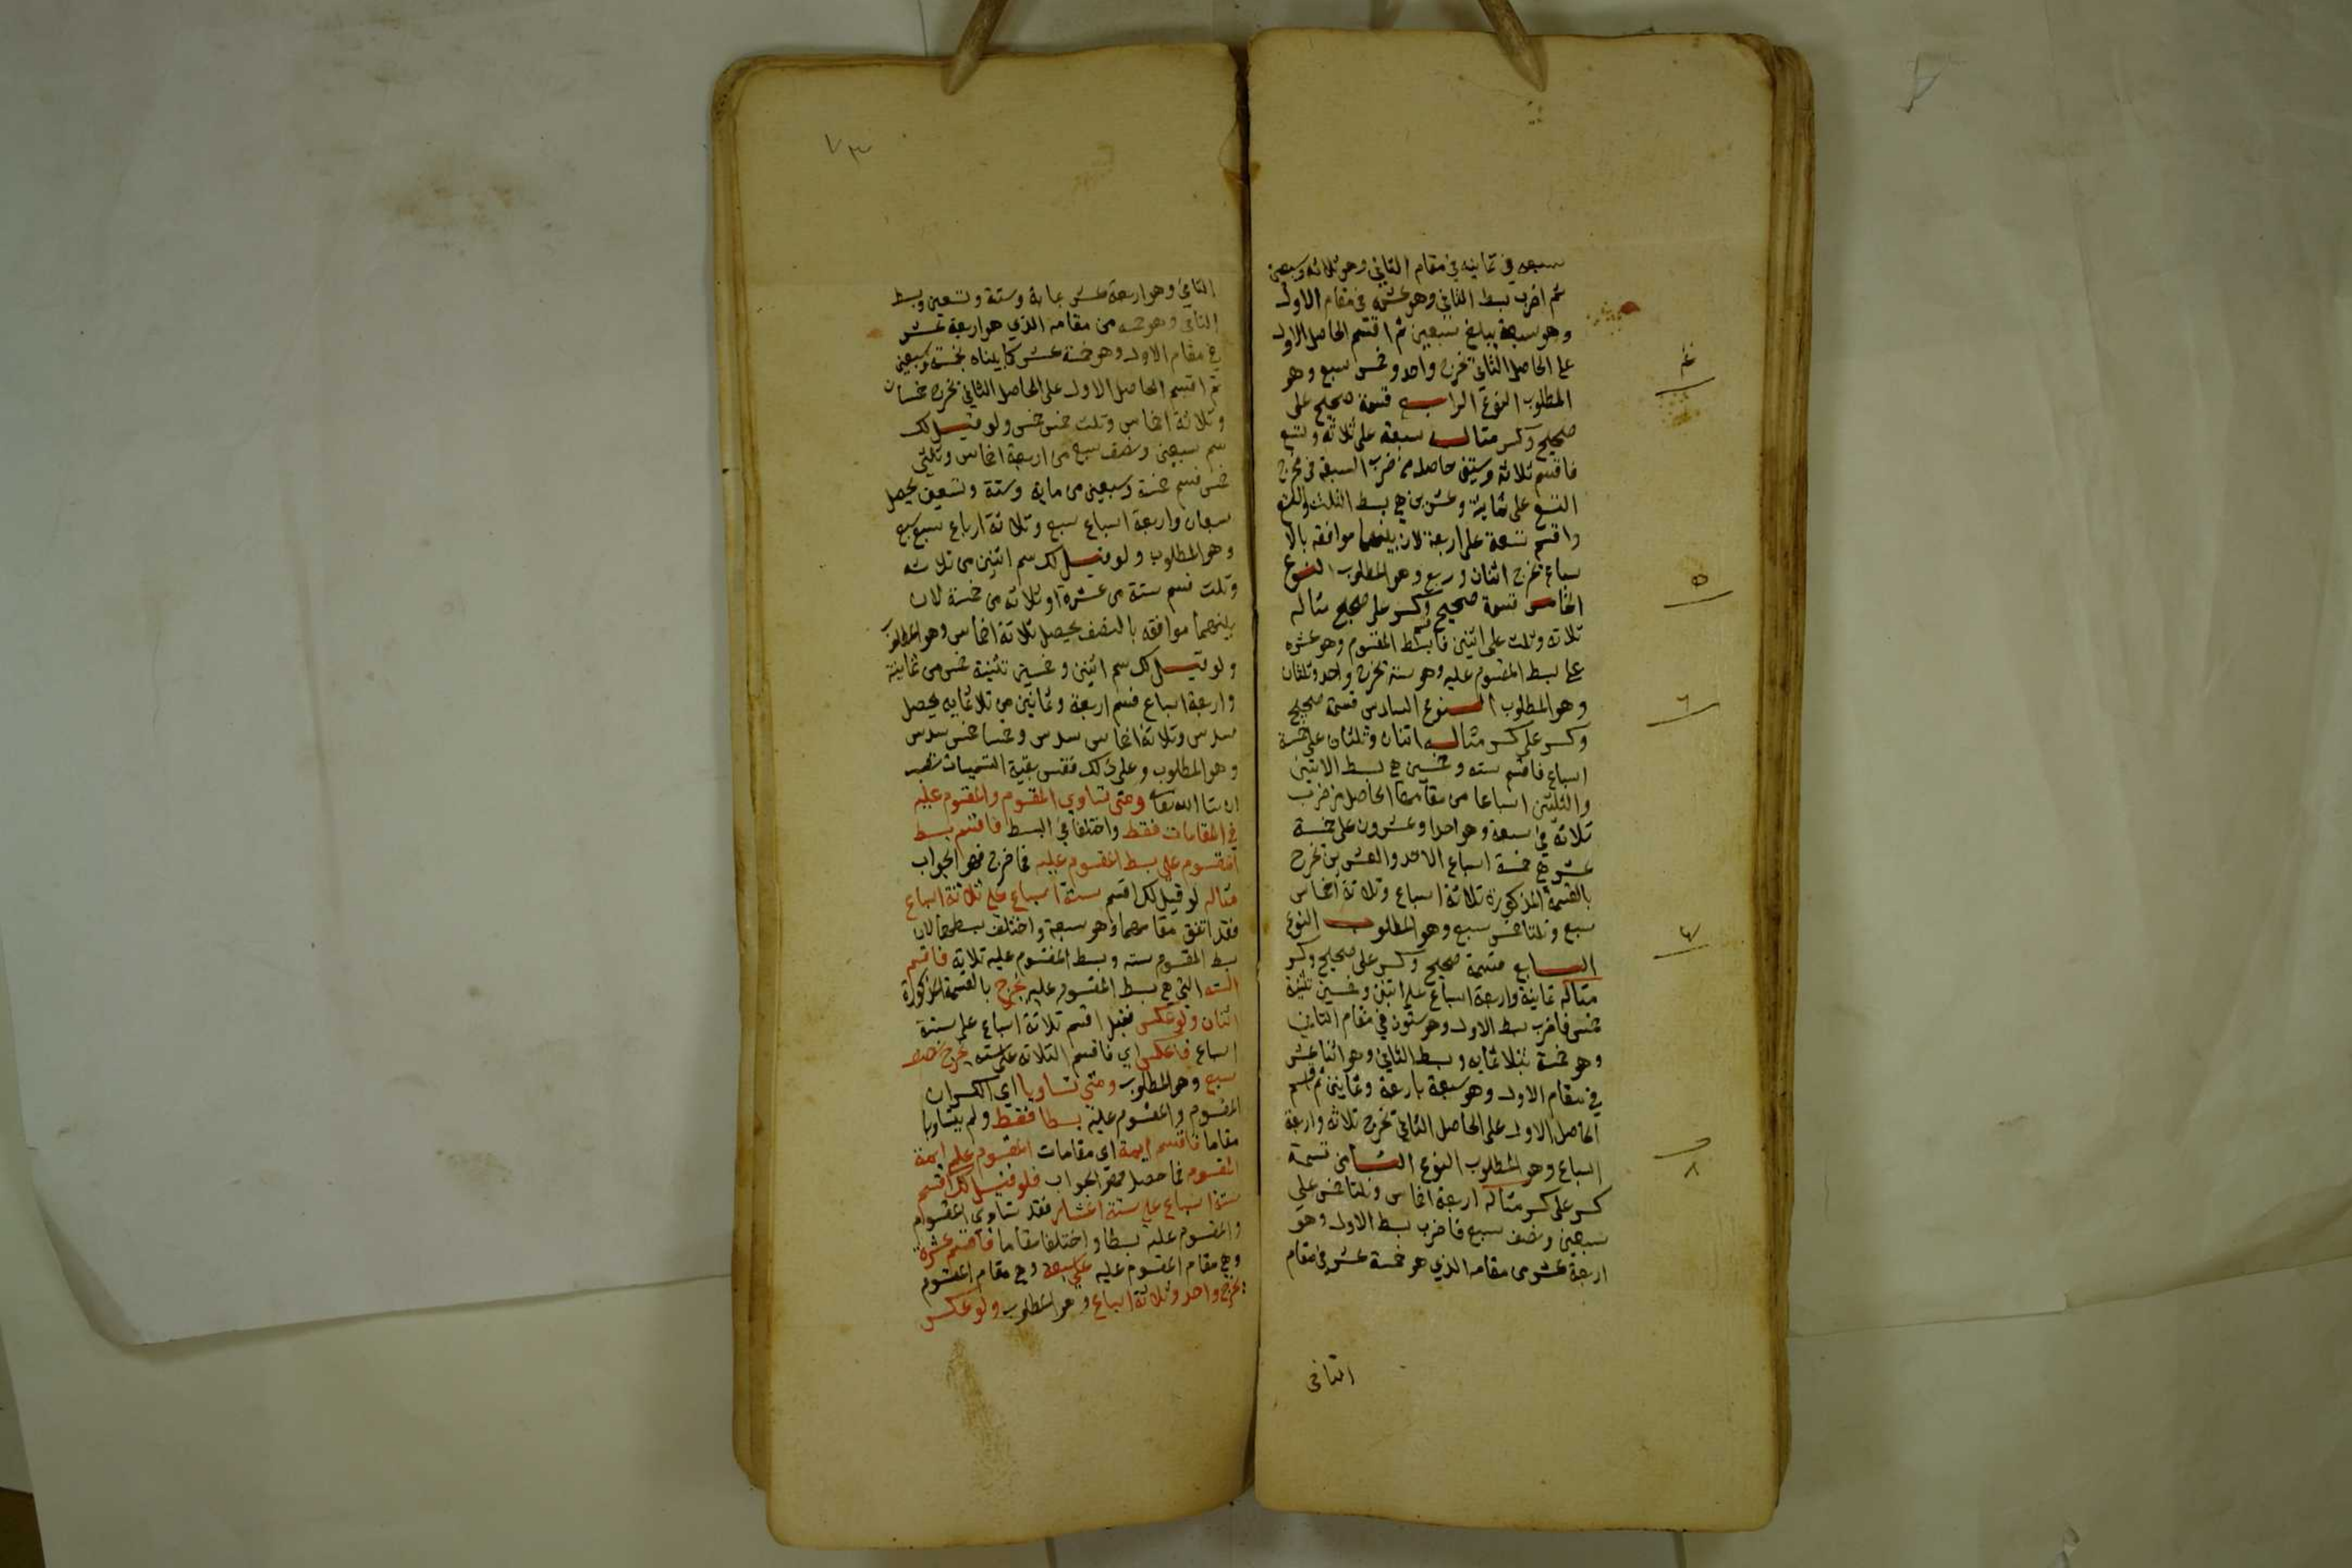 سبعه في ثمانيه في مقام الثاني وهو ثلاثه وسبعين
ثم اضرب بسط الثاني وهو عشره في مقام الاول
وهو سبعة يبلغ سبعين ثم اقسم الحاصل الاول
على الحاصل الثاني يخرج واحد وخمس سبع وهو
المطلوب النوع الرابع قسمة صحيح على
صحيح وكسر مثاله سبعة على ثلاثه وتسع
فاقسم ثلاثة وستين حاصله من ضرب السبعة في مخرج
التسع على ثمانية وعشرين هي بسط الثلث والتسع
واقسم تسعة على اربعة لان بينهما موافقه بالا
سباع يخرج اثنان وربع وهو المطلوب النوع
الخامس قسمة صحيح وكسر على صحيح مثاله
ثلاثه وثلث على اثنين فابسط المقسوم وهو عشره
على بسط المقسوم عليه وهو ستة يخرج واحد وثلثان
وهو المطلوب النوع السادس قسمة صحيح
وكسر على كسر مثاله اثنان وثلثان على خمسة
اسباع فاقسم سته وخمسين هي بسط الاثنين
والثلثين اسباعا من مقامهما الحاصل من ضرب
ثلاثة في سبعة وهو احد وعشرون على خمسة
عشر هي خمسة اسباع الاحد والعشرين يخرج
بالقسمة المذكورة ثلاثة اسباع وثلاثة اخماس
سبع وثلثا خمس سبع وهو المطلوب النوع
السابع قسمة صحيح وكسر على صحيح وكسر
مثاله ثمانية واربعة اسباع على اثنين وخمسين تثنية
خمس فاضرب بسط الاول وهو ستون في مقام الثاني
وهو خمسة بثلاثمايه وبسط الثاني وهو اثنا عشر
في مقام الاول وهو سبعة باربعة وثمانين ثم اقسم
الحاصل الاول على الحاصل الثاني يخرج ثلاثة واربعة
اسباع وهو المطلوب النوع الثامن قسمة
كسر على كسر مثاله اربعة اخماس وثلثا خمس على
سبعين ونصف سبع فاضرب بسط الاول وهو
اربعة عشر من مقامه الذي هو خمسة عشر في مقام
الثاني
٤
٥
٦
٧
٨
٧٣
الثاني وهو اربعة عشر بماية وستة وتسعين وبسط
الثاني وهو خمسه من مقامه الذي هو اربعة عشر
في مقام الاول وهو خمسة عشر كما بيناه بخمسة وسبعين
ثم اقسم الحاصل الاول على الحاصل الثاني يخرج خمسان
وثلاثة اخماس وثلث خمس خمس ولو قيل لك
سم سبعين ونصف سبع من اربعة اخماس وثلثي
خمس فسم خمسة وسبعين من ماية وستة وتسعين يحصل
سبعان واربعة اسباع سبع وثلاثة ارباع سبع سبع
وهو المطلوب ولو قيل لك سم اثنين من ثلاثه
وثلث فسم ستة من عشرة او ثلاثه من خمسة لان
بينهما موافقه بالنصف يحصل ثلاثة اخماس وهو المطلوب
ولو قيل لك سم اثنين وخمسين تثنية خمس من ثمانية
واربعة اسباع فسم اربعة وثمانين من ثلاثمايه يحصل
سدس وثلاثة اخماس سدس وخمسا خمس سدس
وهو المطلوب وعلى ذلك فقس بقية التسميات تصب
ان شا الله تعالى ومتى تساوي المقسوم والمقسوم عليه
في المقامات فقط واختلفا في البسط فاقسم بسط
المقسوم على بسط المقسوم عليه فما خرج فهو الجواب
مثاله لو قيل لك اقسم ستة اسباع على ثلاثة اسباع
فقد اتفق مقامهما وهو سبعة واختلف بسطهما لان
بسط المقسوم سته وبسط المقسوم عليه ثلاثة فاقسم
السته التي هي بسط المقسوم عليه يخرج بالقسمة المذكورة
اثنان ولو عكس فقيل اقسم ثلاثة اسباع على ستة
اسباع فاعكس اي فاقسم الثلاثه على سته يخرج نصف
سبع وهو المطلوب ومتى تساويا اي الكسران
المقسوم والمقسوم عليه بسطا فقط ولم يتساويا
مقاما فاقسم ايمة اي مقامات المقسوم عليه على ايمة
المقسوم فما حصل فهو الجواب فلو قيل لك اقسم
ستة اسباع على ستة اعشار فقد تساوي المقسوم
والمقسوم عليه بسطا واختلفا مقاما فاقسم عشرة
وهي مقام المقسوم عليه على سبعة وهي مقام المقسوم
يخرج واحد وثلاثة اسباع وهو المطلوب ولو عكس